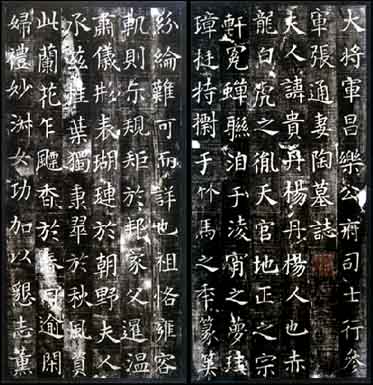 大將軍昌樂公府司士行參
軍張通妻陶墓誌
夫人諱貴丹楊丹楊人也赤
龍白虎之胤天官地正之宗
軒冕蟬聯洎于凌霄之夢珪
璋挺持于竹馬之季篆
紛綸難可而詳也祖恪雍容
軌則尒規矩於邦家父暹溫
肅儀形表瑚璉於朝野夫人
承茲桂葉獨秉翠於秋風資
此蘭花乍飄香於春日逾閑
婦禮妙淑女功加以懇志薰